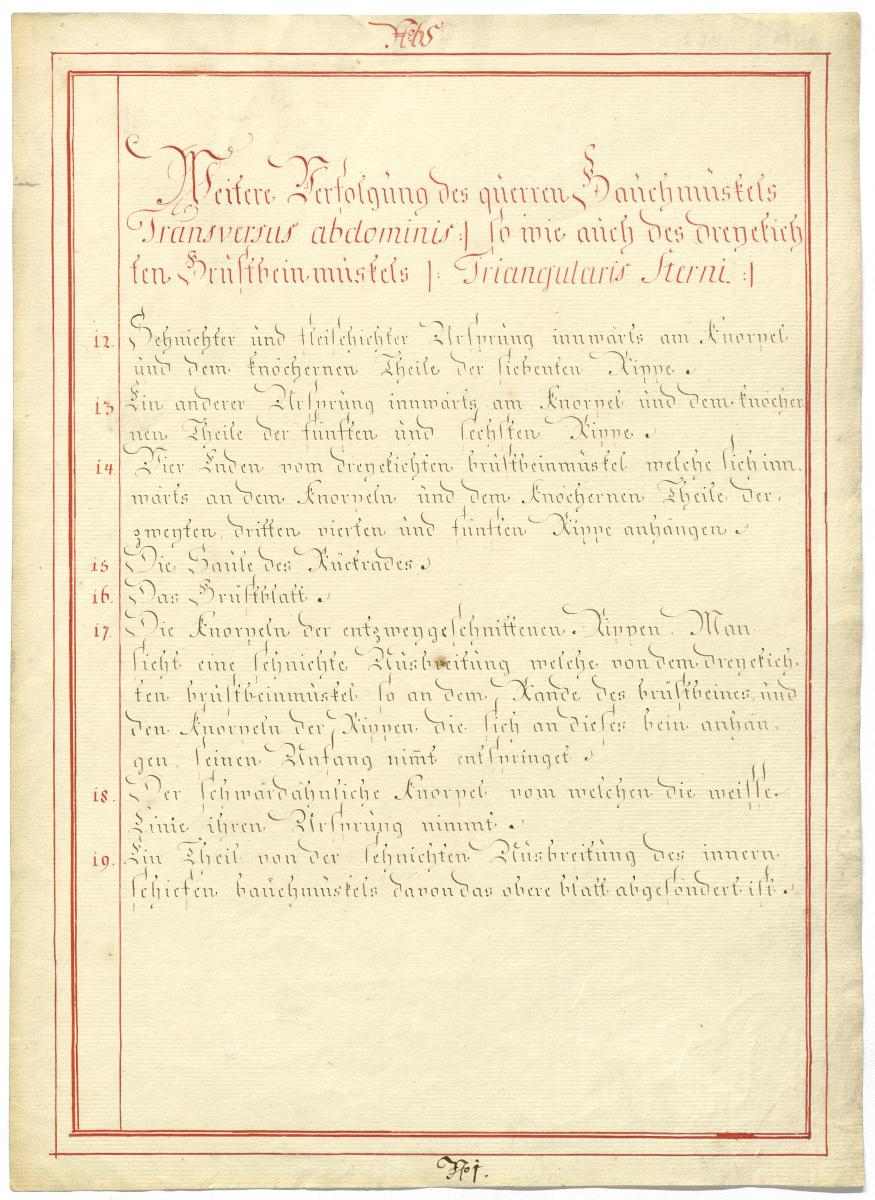 No 65
Weitere Verfolgung des querren Bauchmuskels
Transversus abdominis :| so wie auch des dreyekich
ten Brustbein muskels |: Triangularis Sterni. :|
12. Sehnichter und fleischichter Ursprung innwärts am Knorpel
und dem knöchernen Theile der siebenten Rippe.
13 Ein anderer Ursprung innwärts am Knorpel und dem knöcher
nen Theile der fünften und sechsten Rippe.
14 Vier Enden vom dreyekichten brustbeinmuskel welche sich inn,
wärts an dem Knorpeln und dem Knöchernen Theile der,
zweyten, dritten vierten und fünften Rippe anhängen.
15 Die Saule des Rückrades.
16. Das Brustblatt.
17. Die Knorpeln der entzweygeschnittenen Rippen. Man
sieht eine sehnichte Ausbreitung welche von dem dreyekich,
ten brustbeinmuskel so an dem Rande des brustbeines, und
den Knorpeln der Rippen die sich an dieses bein anhän,
gen, seinen Anfang nim̅t entspringet.
18. Der schwärdähnliche Knorpel vom welchen die weisse
Linie ihren Ursprung nimmt.
19. Ein Theil von der sehnichten Ausbreitung des innern
schiefen bauchmuskels davon das obere blatt abgesöndert ist.
No 1.